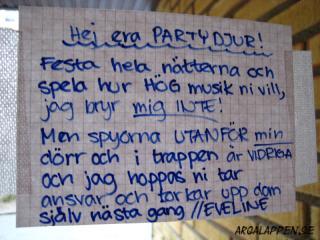 Hej era PARTYDJUR!
Festa hela nätterna och
spela hur HÖG musik ni vill,
jag bryr mig INTE!
Men spyorna UTANFÖR min
dörr och i trappen är VIDRIGA
och jag hoppas ni tar
ansvar och torkar upp dom
själv nästa gång //EVELINE
ARGALAPPEN.SE